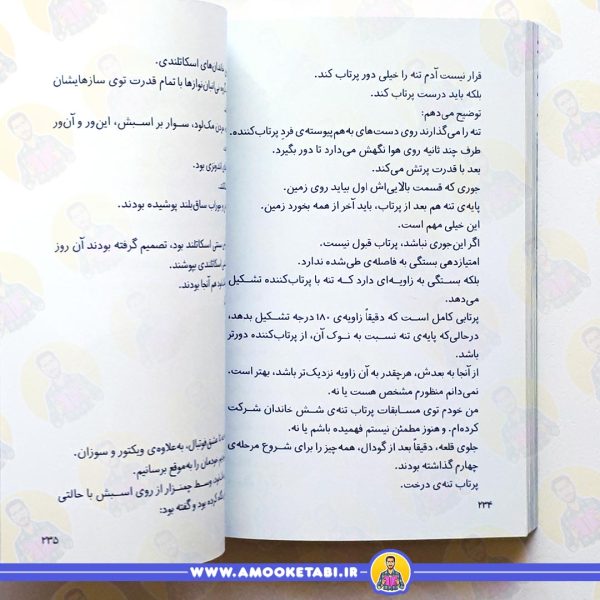 قرار نیست آدم تنه را خیلی دور پرتاب کند.
بلکه باید درست پرتاب کند.
توضیح می‌دهم:
تنه را می‌گذارند روی دست‌های به‌هم‌پیوسته‌ی فردِ پرتاب‌کننده.
طرف چند ثانیه روی هوا نگهش می‌دارد تا دور بگیرد.
بعد با قدرت پرتش می‌کند.
جوری که قسمت بالایی‌اش اول بیاید روی زمین.
پایه‌ی تنه هم بعد از پرتاب، باید آخر از همه بخورد زمین.
این خیلی مهم است.
اگر این‌جوری نباشد، پرتاب قبول نیست.
امتیازدهی بستگی به فاصله‌ی طی‌شده ندارد.
بلکه بستگی به زاویه‌ای دارد که تنه با پرتاب‌کننده تشکیل
می‌دهد.
پرتابی کامل است که دقیقاً زاویه‌ی ۱۸۰ درجه تشکیل بدهد،
درحالی‌که پایه‌ی تنه نسبت به نوک آن، از پرتاب‌کننده دورتر
باشد.
از آنجا به بعدش، هرچقدر به آن زاویه نزدیک‌تر باشد، بهتر است.
نمی‌دانم منظورم مشخص هست یا نه.
من خودم توی مسابقات پرتاب تنه‌ی شش خاندان شرکت
کرده‌ام. و هنوز مطمئن نیستم فهمیده باشم یا نه.
جلوی قلعه، دقیقاً بعد از گودال، همه‌چیز را برای شروع مرحله‌ی
چهارم گذاشته بودند.
پرتاب تنه‌ی درخت.
۲۳۴
خاندان‌های اسکاتلندی.
با تمام قدرت توی سازهایشان
مک‌لود، سوار بر اسبش، این‌ور و آن‌ور
بود.
جوراب ساق‌بلند پوشیده بودند.
سنتی اسکاتلند بود، تصمیم گرفته بودند آن روز
اسکاتلندی بپوشند.
هم آنجا بودند.
عشق فوتبال، به‌علاوه‌ی ویکتور و سوزان.
خودمان را به‌موقع برسانیم.
وسط چمنزار از روی اسبش با حالتی
کرده بود و گفته بود:
۲۳۵
WWW.AMOOKETABI.IR